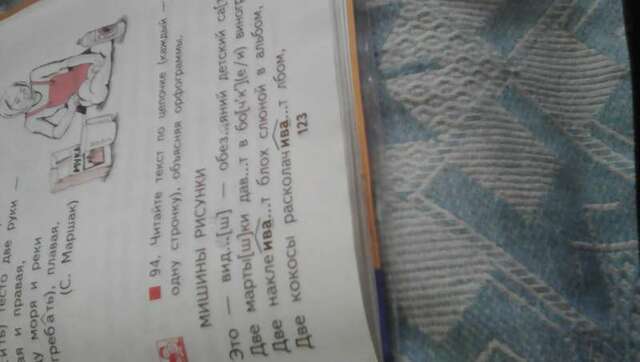 ить) тесто две руки —
ая и правая,
у моря и реки
требать), плавая.
(С. Маршак)
МУКА
94. Читайте текст по цепочке (каждый —
одну строчку), объясняя орфограммы.
МИШИНЫ РИСУНКИ
Это — вид...[ш] — обез...яний детский са[т
Две марты[ш]ки дав...т в бо[ч'к'](е/и) виногр
Две наклеива...т блох слюной в альбом,
Две кокосы расколачива...т лбом,
123